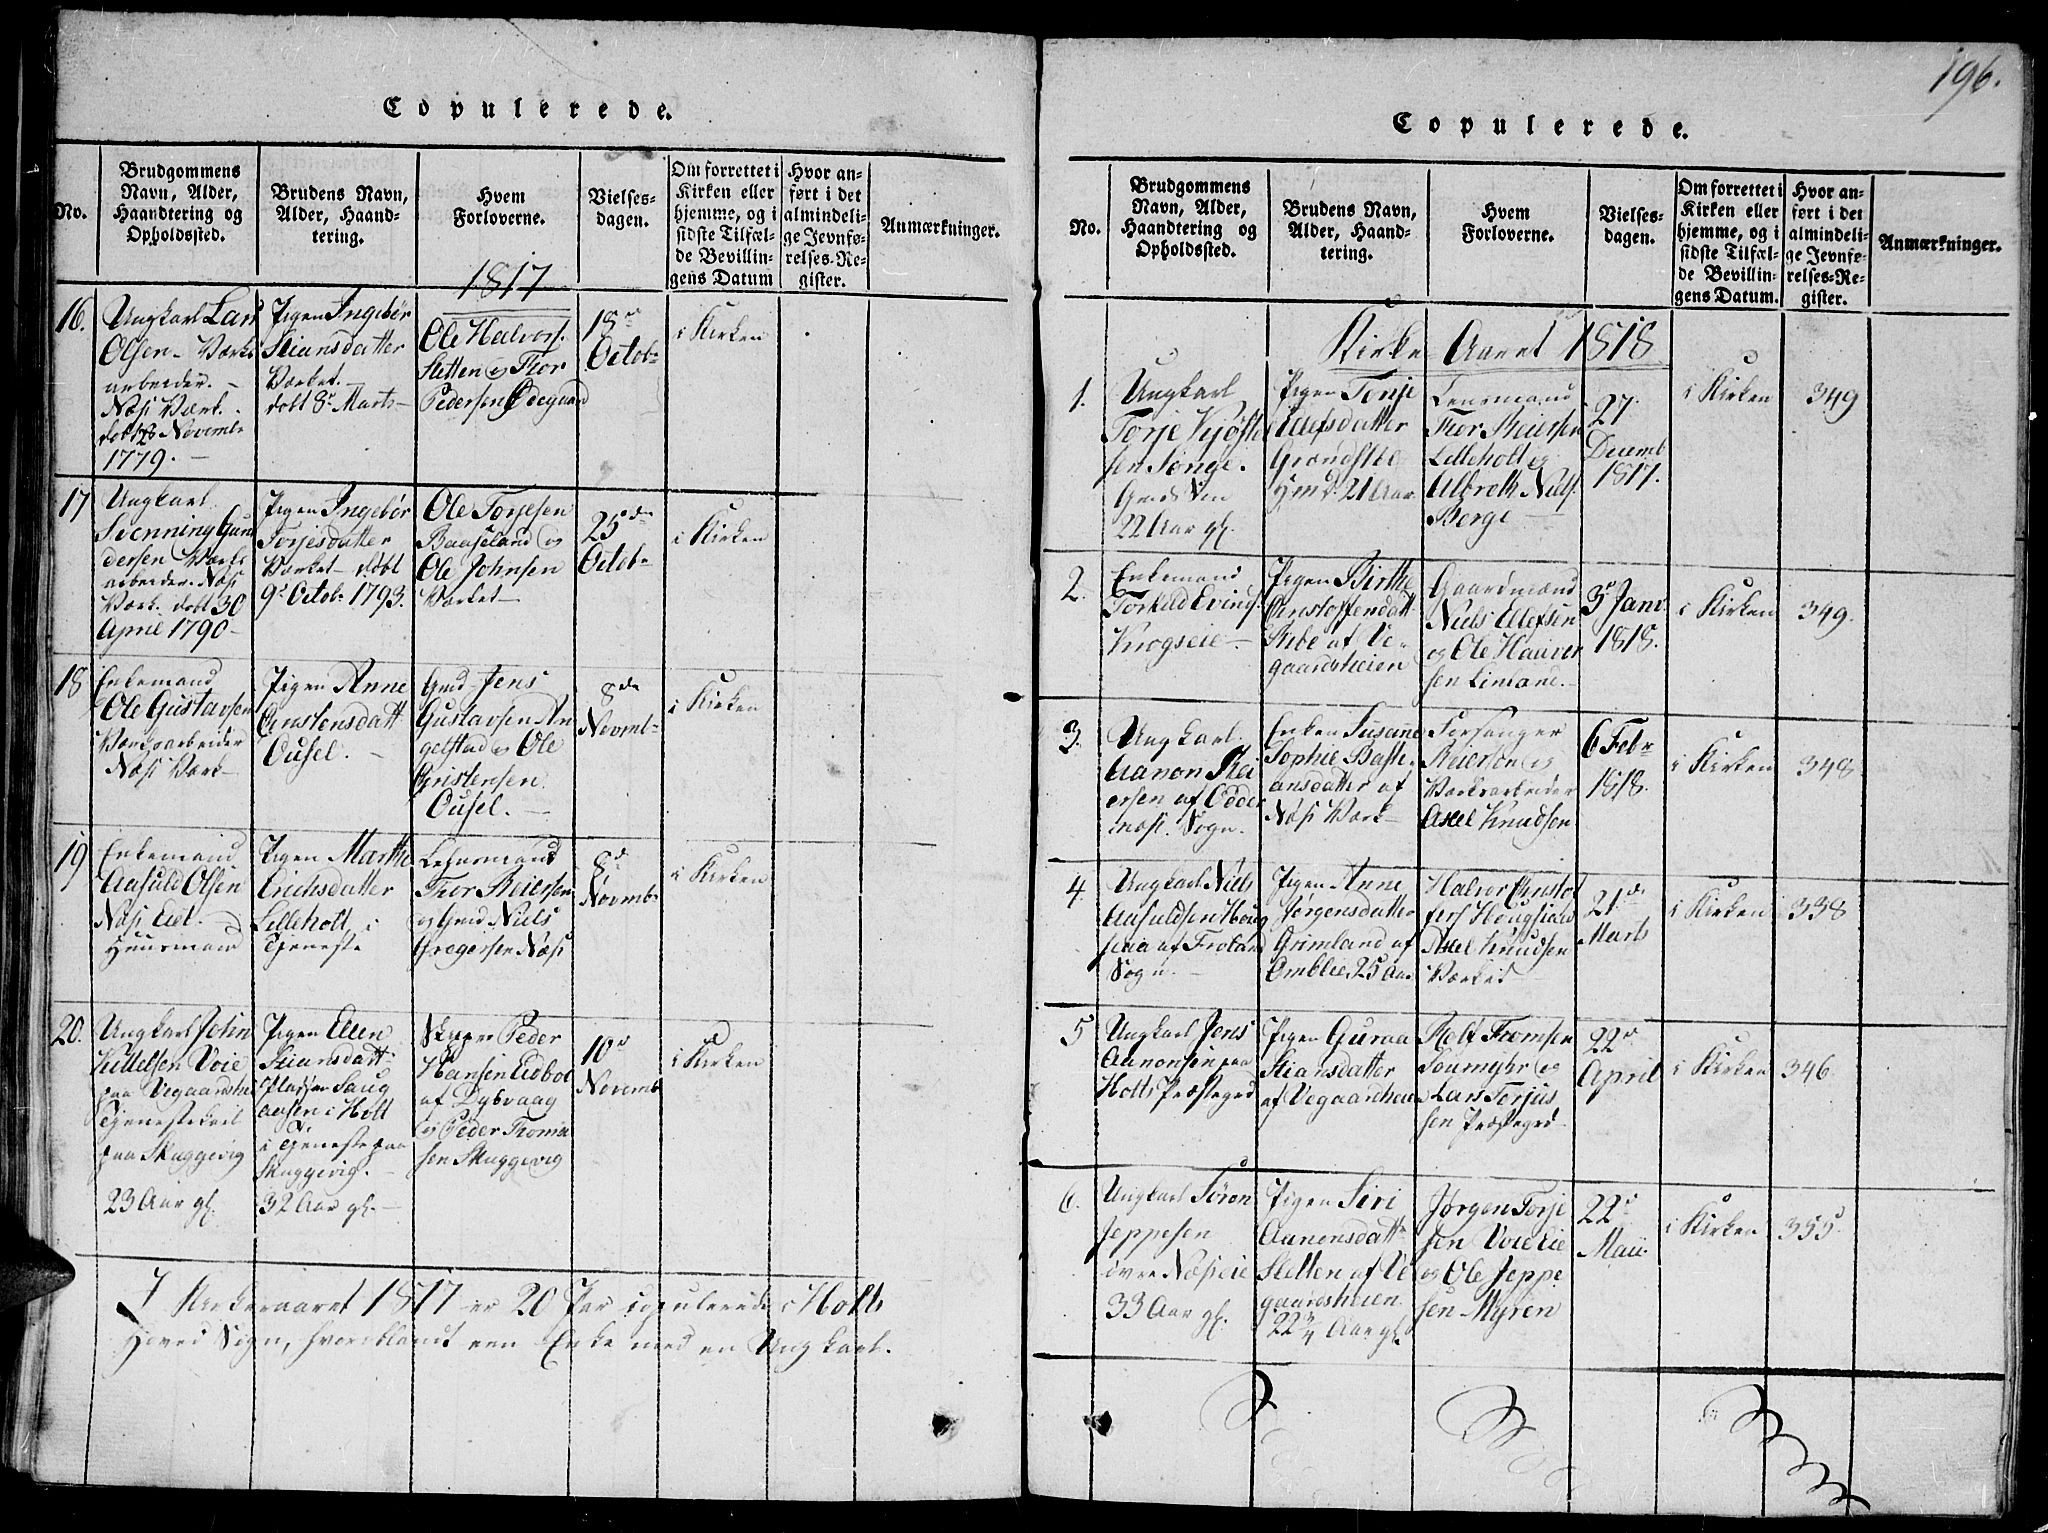 196.
Copulerede.
No.
Brudgommens
Navn, Alder,
Haandtering og
Opholdssted.
Brudens Navn,
Alder, Haand-
tering.
Hvem
Forloverne.
Vielses-
dagen.
Om forrettet i
Kirken eller
hjemme, og i
sidste Tilfæl-
de Bevillin-
gens Datum
Hvor an-
ført i det
almindeli-
ge Jevnfø-
relses-Re-
gister.
Anmærkninger.
1817
16.
Ungkarl Lars
Olsen - Værks
arbeider. -
Næs Værk.
døbt 28 Novembr
1779. -
Pigen Ingebør
Stiansdatter
Værket. -
døbt 8d Marts -
Ole Halvors.
Sletten og Thor
Pedersen Ødegaard
18d
Octob:
i Kirken
17
Ungkarl
Svenning Gun
dersen Værks
arbeider. Næs
Værk. døbt 30
April 1790 -
Pigen Ingebør
Torjesdatter
Værket - døbt
9d Octob: 1793.
Ole Torjesen
Baaseland og
Ole Johnsen
Værket -
25de
Octob:
i Kirken
18
Enkemand
Ole Gustavsen
Værksarbeider
Næs Værk -
Pigen Anne
Christensdatt
Ousel. -
Gmd Jens
Gustavsen An
gelstad og Ole
Christensen
Ousel. -
8de
Novmb:
i Kirken
19
Enkemand
Aasuld Olsen
Næs Eiet. -
Huusmand
Pigen Marthe
Erichsdatter
Lilleholt i
Tjeneste
Lehnsmand
Thor Reiersen
og Gmd Niels
Gregersen Næs
8d
Novemb:
i Kirken
20.
Ungkarl John
Kittelsen Voie
paa Vegaardshei
Tjenestekarl
paa Skuggevig
23 Aar gl.
Pigen Ellen
Stiansdatt:
Pladsen Saug
aasen i Holt
i Tjeneste paa
Skuggevig. -
32 Aar gl. -
Skipper Peder
Hansen Eidbo
af Dybvaag
og Peder Thomas
sen Skuggevig
10d
Novemb
i Kirken
I Kirkeaaret 1817 er 20 Par copulerede i Holts
Hoved Sogn, hvoriblandt een Enke med en Ungkarl.
Copulerede.
No.
Brudgommens
Navn, Alder,
Haandtering og
Opholdssted.
Brudens Navn,
Alder, Haand-
tering.
Hvem
Forloverne.
Vielses-
dagen.
Om forrettet i
Kirken eller
hjemme, og i
sidste Tilfæl-
de Bevillin-
gens Datum.
Hvor an-
ført i det
almindeli-
ge Jevnfø-
relses-Re-
gister.
Anmærkninger.
Kirke Aaret 1818
1.
Ungkarl
Torje
sen Songe.
22 Aar gl.
Pigen Tonje
Ellefsdatter
21 Aar
Lensmand
Thor Reiersen
Lilleholt og
Albreth Niels.
Berge -
27.
Decemb
1817.
i Kirken
349
2.
Enkemand
Torkild Evinds.
Krogseie -
Pigen Birthe
Christophersdatt
af Ve-
gaardsheien
Gaardmænd
Niels Ellefsen
og Ole
sen Limane. -
3d Janv.
1818.
i Kirken
349.
3.
Ungkarl
Aanon Rei
ersen af Odder
næs. Sogn.
Enken Susanne
Sophie Basti
ansdatter af
Næs Værk -
Forsanger
Reierson og
Værksarbeider
Axel Knudsen
6 Febr
1818.
i Kirken
348
4.
Ungkarl Niels
Aasuldsen
af Froland
Sogn. -
Pigen Anne
Jørgensdatter
Grimland af
Omblie 25 Aar
Halvor Christof
fers
Axel Knudsen
Værket -
21de
Marts
i Kirken
338
5
Ungkarl Jens
Aanonsen paa
Holts Præstegrd
Pigen Guraa
Stiansdatter
af Vegaardsheien
Rolf Tromsen
Songmyhr og
Lars Torjus
sen Præstegrd.
22d
April
i Kirken
346.
6.
Ungkarl Søren
Jeppesen
øvre Næs eie
33 Aar gl.
Pigen Siri
Aanonsdatt:
Sletten af Ve
gaardsheien
22 3/4 Aar gl.
Jørgen Torje
sen Voie Eie
og Ole Jeppe
sen Myren
22d
Maii.
i Kirken
355.